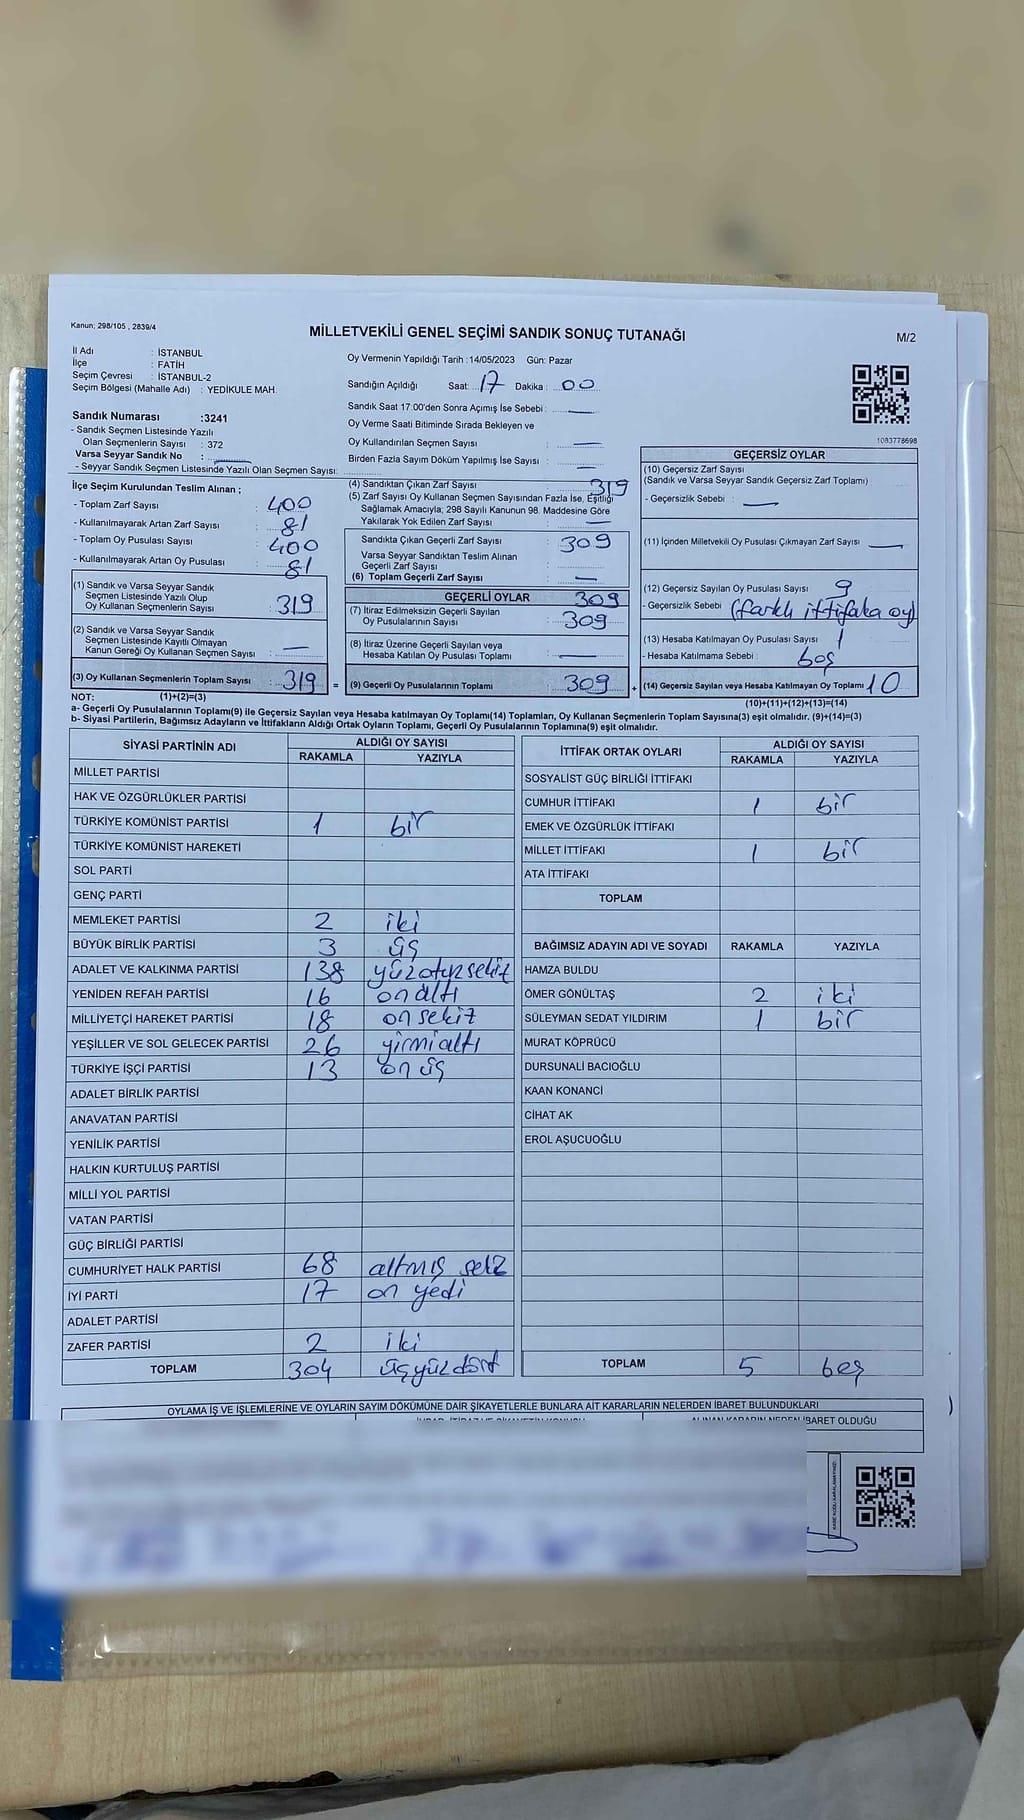 Kanun; 298/105 , 2839/4
MİLLETVEKİLİ GENEL SEÇİMİ SANDIK SONUÇ TUTANAĞI
M/2
İl Adı : İSTANBUL
İlçe : FATİH
Seçim Çevresi : İSTANBUL-2
Seçim Bölgesi (Mahalle Adı) : YEDİKULE MAH.
Sandık Numarası :3241
- Sandık Seçmen Listesinde Yazılı
Olan Seçmenlerin Sayısı : 372
Varsa Seyyar Sandık No :
- Seyyar Sandık Seçmen Listesinde Yazılı Olan Seçmen Sayısı:
Oy Vermenin Yapıldığı Tarih :14/05/2023 Gün: Pazar
Sandığın Açıldığı Saat: 17 Dakika : 00
Sandık Saat 17:00'den Sonra Açımış İse Sebebi : —
Oy Verme Saati Bitiminde Sırada Bekleyen ve
Oy Kullandırılan Seçmen Sayısı : —
Birden Fazla Sayım Döküm Yapılmış İse Sayısı : —
1083778698
İlçe Seçim Kurulundan Teslim Alınan ;
- Toplam Zarf Sayısı : 400
- Kullanılmayarak Artan Zarf Sayısı : 81
- Toplam Oy Pusulası Sayısı : 400
- Kullanılmayarak Artan Oy Pusulası : 81
(1) Sandık ve Varsa Seyyar Sandık
Seçmen Listesinde Yazılı Olup
Oy Kullanan Seçmenlerin Sayısı : 319
(2) Sandık ve Varsa Seyyar Sandık
Seçmen Listesinde Kayıtlı Olmayan
Kanun Gereği Oy Kullanan Seçmen Sayısı : —
(3) Oy Kullanan Seçmenlerin Toplam Sayısı : 319 =
(4) Sandıktan Çıkan Zarf Sayısı : 319
(5) Zarf Sayısı Oy Kullanan Seçmen Sayısından Fazla İse, Eşitliği
Sağlamak Amacıyla; 298 Sayılı Kanunun 98. Maddesine Göre
Yakılarak Yok Edilen Zarf Sayısı : —
Sandıkta Çıkan Geçerli Zarf Sayısı : 309
Varsa Seyyar Sandıktan Teslim Alınan
Geçerli Zarf Sayısı :
(6) Toplam Geçerli Zarf Sayısı : —
GEÇERLİ OYLAR 309
(7) İtiraz Edilmeksizin Geçerli Sayılan
Oy Pusulalarının Sayısı : 309
(8) İtiraz Üzerine Geçerli Sayılan veya
Hesaba Katılan Oy Pusulası Toplamı : —
(9) Geçerli Oy Pusulalarının Toplamı : 309 +
GEÇERSİZ OYLAR
(10) Geçersiz Zarf Sayısı
(Sandık ve Varsa Seyyar Sandık Geçersiz Zarf Toplamı)
- Geçersizlik Sebebi : —
(11) İçinden Milletvekili Oy Pusulası Çıkmayan Zarf Sayısı —
(12) Geçersiz Sayılan Oy Pusulası Sayısı : 9
- Geçersizlik Sebebi (farklı ittifaka oy)
(13) Hesaba Katılmayan Oy Pusulası Sayısı : 1
- Hesaba Katılmama Sebebi : boş
(14) Geçersiz Sayılan veya Hesaba Katılmayan Oy Toplamı 10
NOT: (1)+(2)=(3)
(10)+(11)+(12)+(13)=(14)
a- Geçerli Oy Pusulalarının Toplamı(9) ile Geçersiz Sayılan veya Hesaba katılmayan Oy Toplamı(14) Toplamları, Oy Kullanan Seçmenlerin Toplam Sayısına(3) eşit olmalıdır. (9)+(14)=(3)
b- Siyasi Partilerin, Bağımsız Adayların ve İttifakların Aldığı Ortak Oyların Toplamı, Geçerli Oy Pusulalarının Toplamına(9) eşit olmalıdır.
SİYASİ PARTİNİN ADI ALDIĞI OY SAYISI
RAKAMLA YAZIYLA
MİLLET PARTİSİ
HAK VE ÖZGÜRLÜKLER PARTİSİ
TÜRKİYE KOMÜNİST PARTİSİ 1 bir
TÜRKİYE KOMÜNİST HAREKETİ
SOL PARTİ
GENÇ PARTİ
MEMLEKET PARTİSİ 2 iki
BÜYÜK BİRLİK PARTİSİ 3 üş
ADALET VE KALKINMA PARTİSİ 138 yüzotuzsekiz
YENİDEN REFAH PARTİSİ 16 onaltı
MİLLİYETÇİ HAREKET PARTİSİ 18 onsekiz
YEŞİLLER VE SOL GELECEK PARTİSİ 26 yirmialtı
TÜRKİYE İŞÇİ PARTİSİ 13 onüş
ADALET BİRLİK PARTİSİ
ANAVATAN PARTİSİ
YENİLİK PARTİSİ
HALKIN KURTULUŞ PARTİSİ
MİLLİ YOL PARTİSİ
VATAN PARTİSİ
GÜÇ BİRLİĞİ PARTİSİ
CUMHURİYET HALK PARTİSİ 68 altmış sekiz
İYİ PARTİ 17 on yedi
ADALET PARTİSİ
ZAFER PARTİSİ 2 iki
TOPLAM 304 üşyüzdört
İTTİFAK ORTAK OYLARI ALDIĞI OY SAYISI
RAKAMLA YAZIYLA
SOSYALİST GÜÇ BİRLİĞİ İTTİFAKI
CUMHUR İTTİFAKI 1 bir
EMEK VE ÖZGÜRLÜK İTTİFAKI
MİLLET İTTİFAKI 1 bir
ATA İTTİFAKI
TOPLAM
BAĞIMSIZ ADAYIN ADI VE SOYADI RAKAMLA YAZIYLA
HAMZA BULDU
ÖMER GÖNÜLTAŞ 2 iki
SÜLEYMAN SEDAT YILDIRIM 1 bir
MURAT KÖPRÜCÜ
DURSUNALİ BACIOĞLU
KAAN KONANCİ
CİHAT AK
EROL AŞUCUOĞLU
TOPLAM 5 beş
OYLAMA İŞ VE İŞLEMLERİNE VE OYLARIN SAYIM DÖKÜMÜNE DAİR ŞİKAYETLERLE BUNLARA AİT KARARLARIN NELERDEN İBARET BULUNDUKLARI
ALINAN KARARIN NEDEN İBARET OLDUĞU